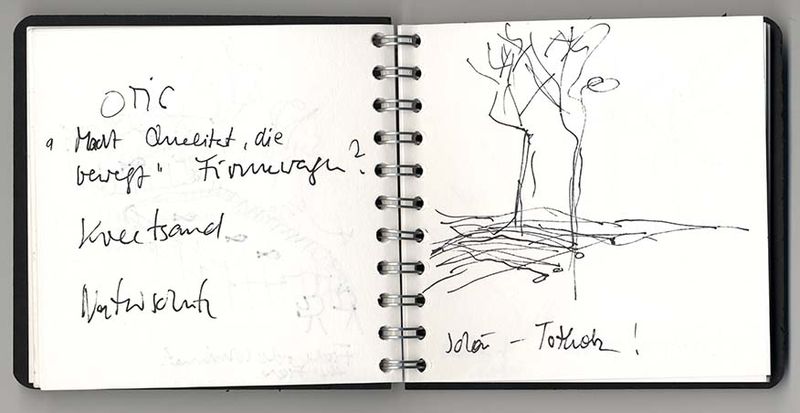 OTIC
" Macht Qualität, die
bewegt" Firmenwagen?
Kneetsand
Naturschutz
– Totholz !